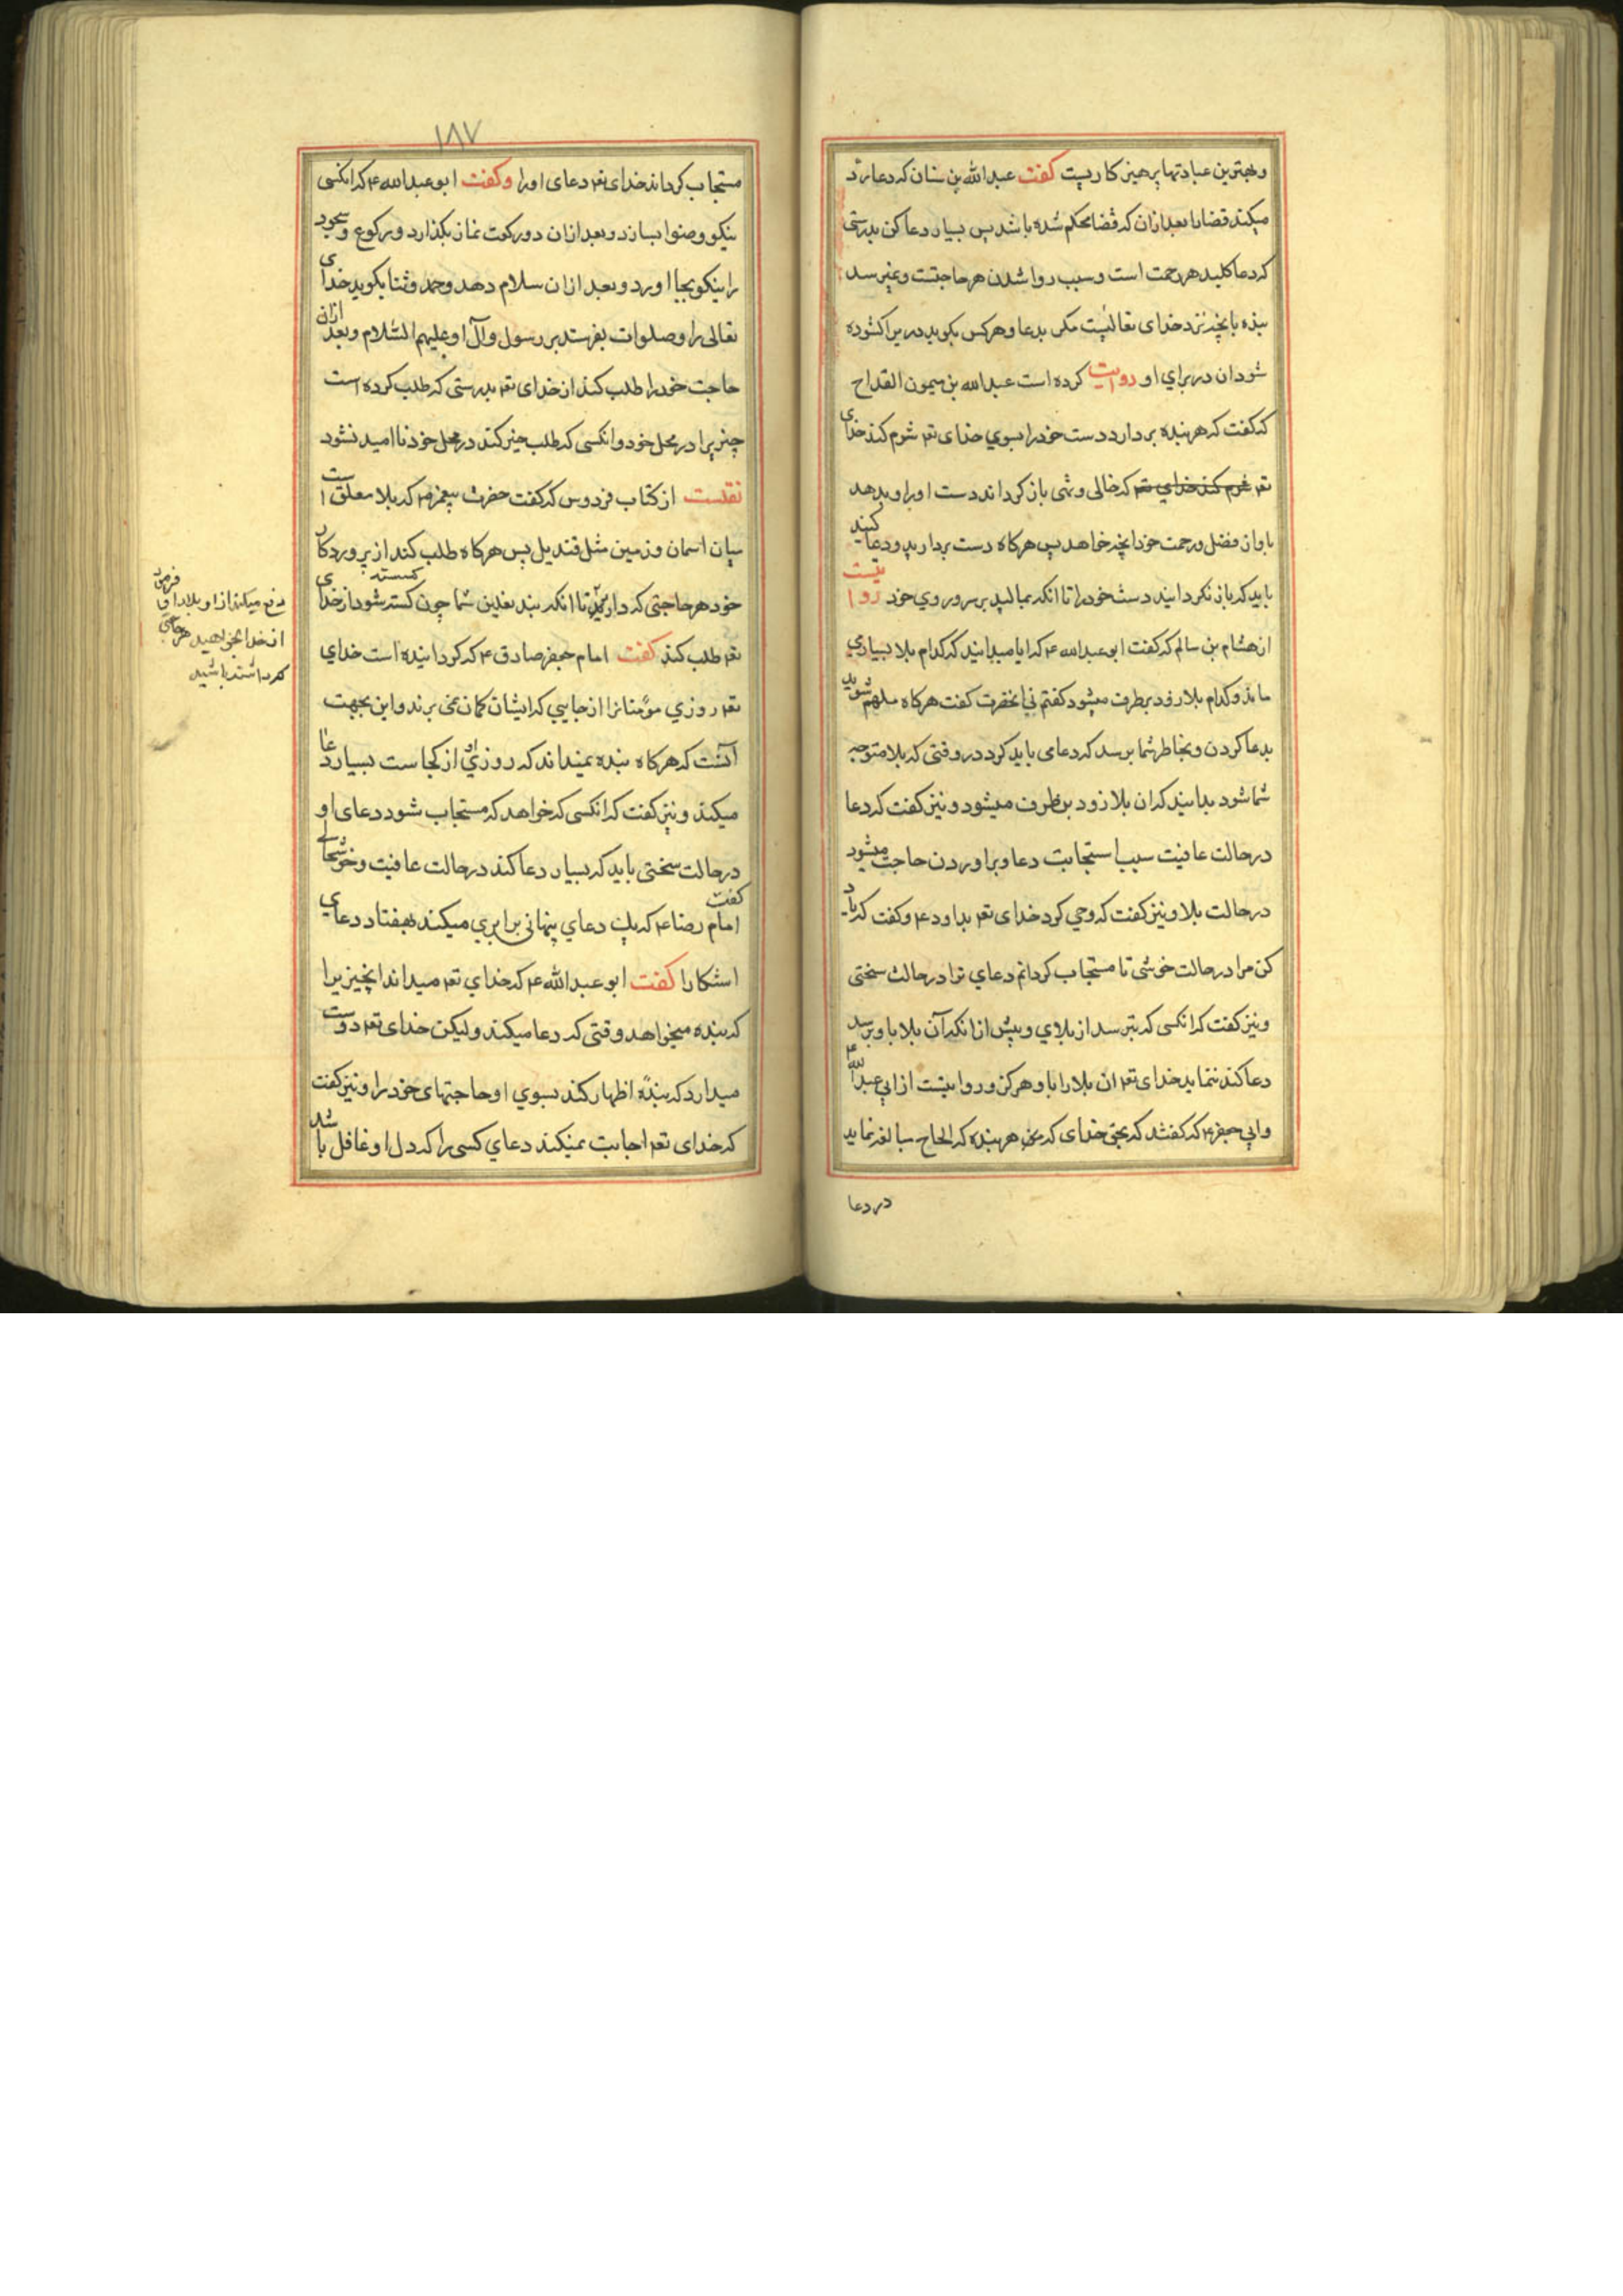 و بهترین عبادتها پرهیز کاریست کفت عبدالله بن سنان که دعا رد
میکند قضا را بعد ازان که قضا محکم شده باشد پس بسیار دعا کن بدرستی
که دعا کلید هر رحمت است و سبب روا شدن هر حاجتست و نمیرسد
بنده بانچه نزد خدای تعالیست مکر بدعا و هرکس بکوبد در یرا کشوده
شود ان در برای او روایت کرده است عبدالله بن میمون القداح
که کفت که هر بنده بردارد دست خود را بسوی خدای تع شرم کند خدای
تع شرم کند خدای تع که خالی و تهی باز کرداند دست او را و بدهد
باو از فضل و رحمت خود انچه خواهد پس هرکاه دست بردارید و دعا کنید
باید که باز نکردانید دست خود را تا انکه بمالید بر سر و روی خود روایتست
از هشام بن سالم که کفت ابو عبدالله ع که ایا میدانید که کدام بلا بسیاری
ماند و کدام بلا زود برطرف میشود کفتم نی انحضرت کفت هرکاه ملهم شوید
بدعا کردن و بخاطر شما برسد که دعای باید کرد در وقتی که بلا متوجه
شما شود بدانید که ان بلا زود برطرف میشود و نیز کفت که دعا
در حالت عافیت سبب استجابت دعا و براوردن حاجت میشود
در حالت بلا و نیز کفت که وحی کرد خدای تع بداود ع و کفت که یاد
کن مرا در حالت خوشی تا مستجاب کردانم دعای ترا در حالت سختی
و نیز کفت که انکسی که بترسد از بلای و پیش از انکه آن بلا باو برسد
دعا کند ننماید خدای تع ان بلا را باو هرکز و روایتست از ابی عبدالله ع
و ابی جعفر ع که کفتند که بحق خدای که هر بنده که الحاح مبالغه نماید
در دعا
۱۸۷
مستجاب کرداند خدای تع دعای اورا و کفت ابو عبدالله ع که انکسی
نیکو وضو بسازد و بعد ازان دو رکعت نماز بکذارد و رکوع و سجود
را نیکو بجا اورد و بعد ازان سلام دهد و حمد و ثنا بکوید خدای
تعالی را و صلوات بفرستد بر رسول و آل او علیهم السلام و بعد ازان
حاجت خود را طلب کند از خدای تع بدرستی که طلب کرده است
چیزیرا در محل خود و انکسی که طلب خیر کند در محل خود نا امید نشود
نقلست از کتاب فردوس که کفت حضرت پیغمبر ص که بلا معلق است
میان اسمان و زمین مثل قندیل پس هرکاه طلب کند از پروردکار
خود هر حاجتی که دارید تا انکه بند نعلین شما چون کسسته شود از خدای
تع طلب کند کفت امام جعفر صادق ع که کردانیده است خدای
تع روزی مؤمنانرا از جایی که ایشان کمان نمی برند و این بجهت
آنست که هرکاه بنده نمیداند که روزی او از کجاست بسیار دعا
میکند و نیز کفت که انکسی که خواهد که مستجاب شود دعای او
در حالت سختی باید که بسیار دعا کند در حالت عافیت و خوشحالی
کفت امام رضا ع که یک دعای پنهانی برابری میکند بهفتاد دعای
اشکارا کفت ابو عبدالله ع که خدای تع میداند انچیزیرا
که بنده میخواهد وقتی که دعا میکند ولیکن خدای تع دوست
میدارد که بنده اظهار کند بسوی او حاجتهای خود را و نیز کفت
که خدای تع اجابت نمیکند دعای کسی را که دل او غافل باشد
دفع میکند از او بلا را و فرمود
از خدا بخواهید هر حاجتی
که داشته باشید